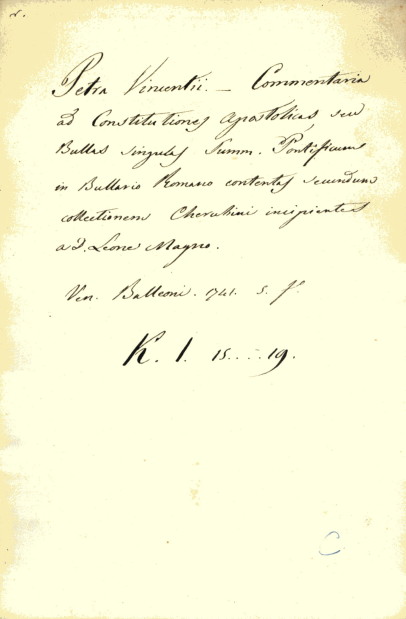 Petra Vincentii. — Commentaria
ad Constitutiones Apostolicas seu
Bullas singulas Summ. Pontificum
in Bullario Romano contentas secundum
collectionem Cherubini incipientes
a D. Leone Magno.
Ven. Balleoni. 1741. 5. f.
K. I. 15....19.
C